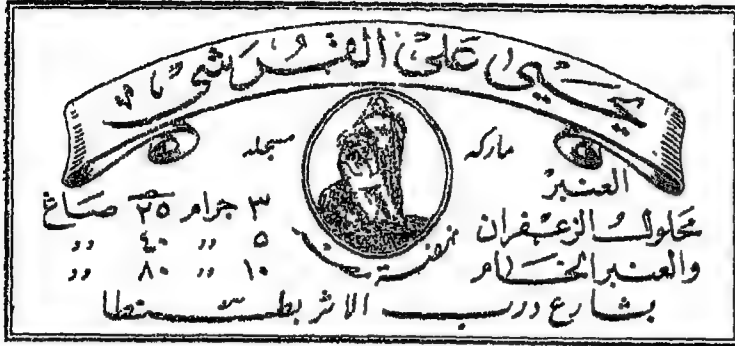 يحيى على القرشى
ماركه مسجله
نهضة مصر
العنبر
محلول الزعفران
والعنبر الخام
٣ جرام ٢٥ صاغ
٥ ،، ٤٠ ،،
١٠ ،، ٨٠ ،،
بشارع درب الاثر بطنطا